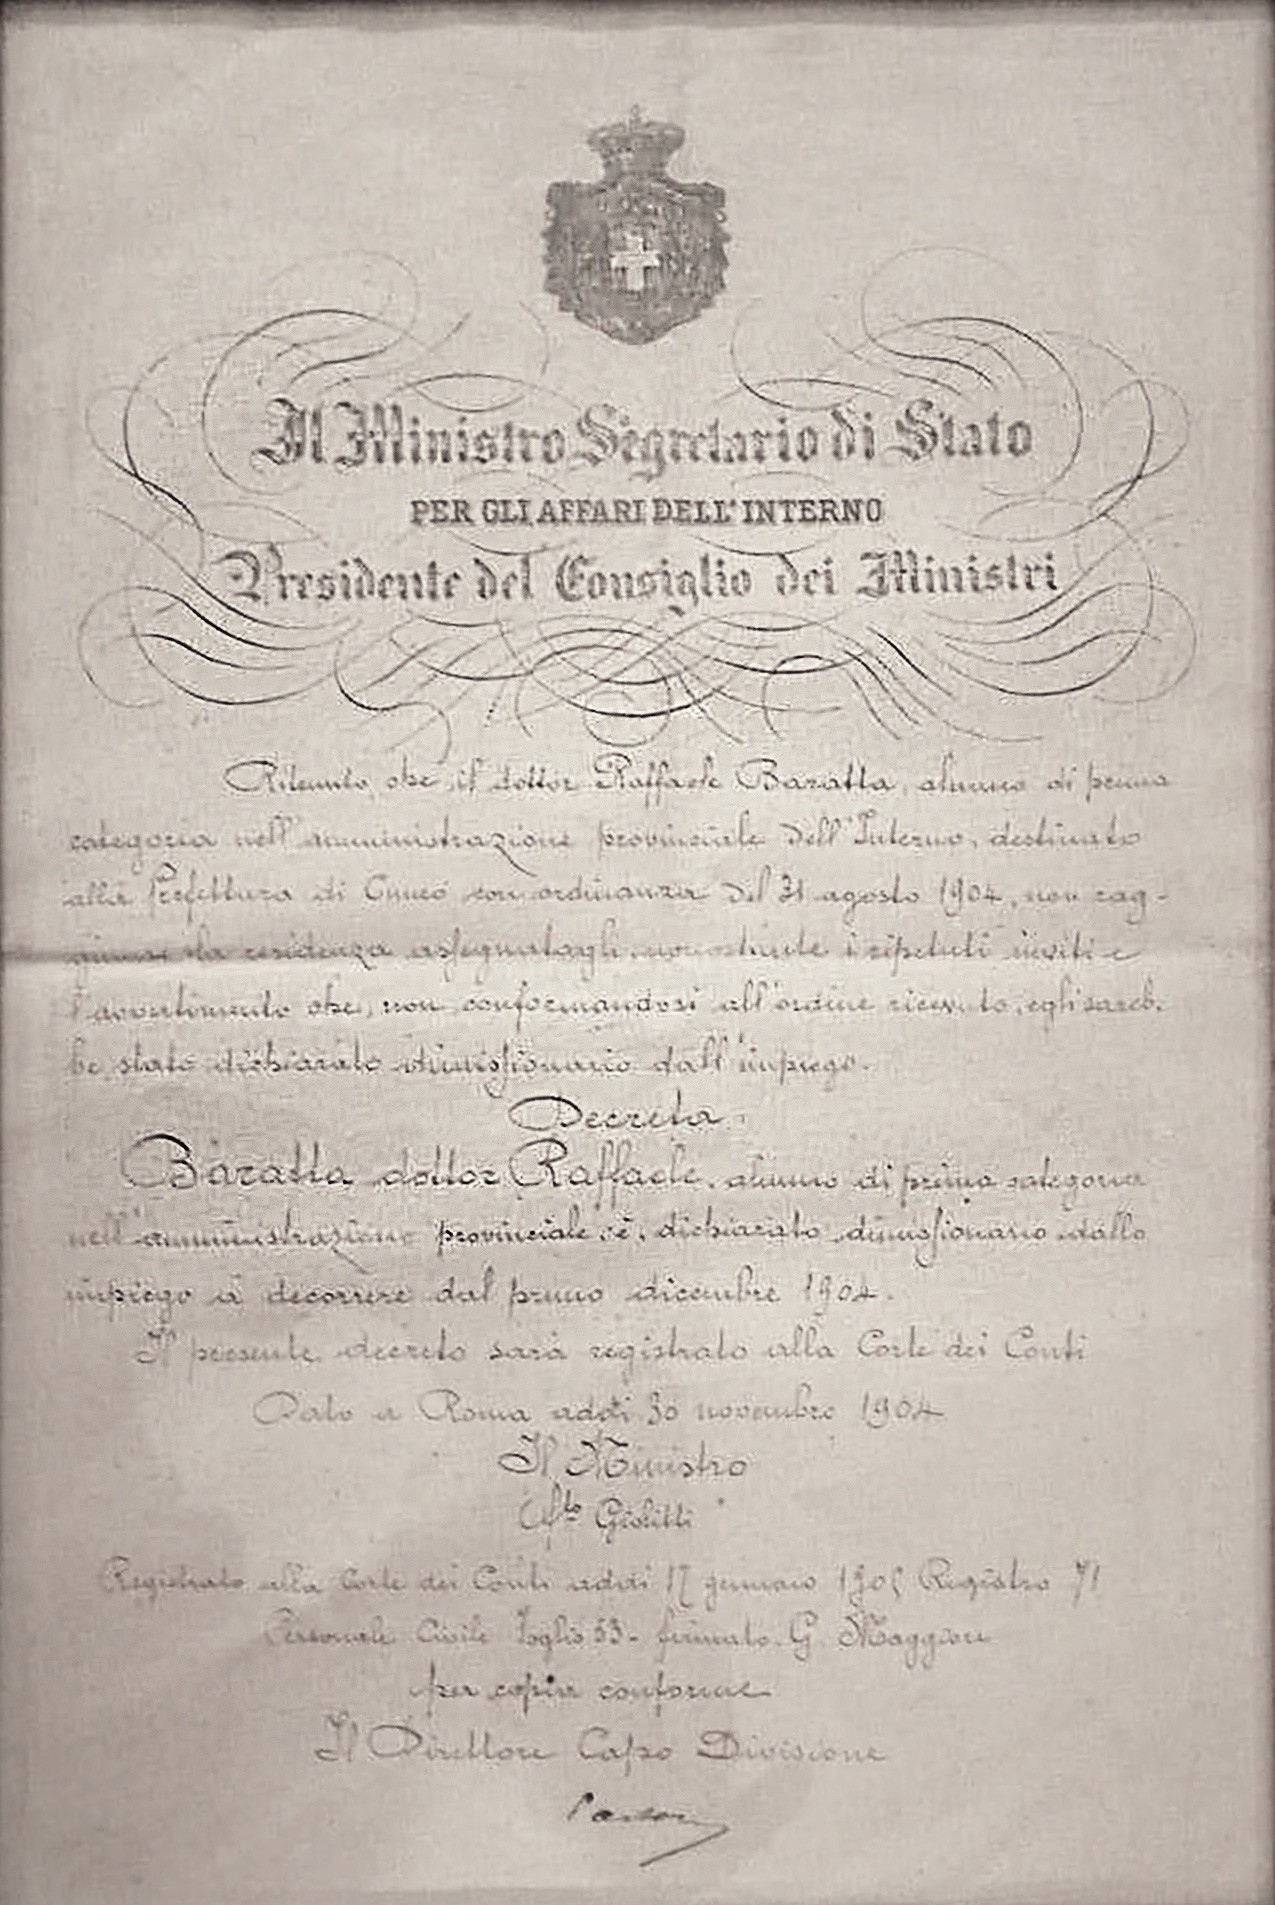 Il Ministro Segretario di Stato
PER GLI AFFARI DELL'INTERNO
Presidente del Consiglio dei Ministri
Ritenuto che il dottor Raffaele Baratta, alunno di prima
categoria nell'amministrazione provinciale dell'Interno, destinato
alla Prefettura di Cuneo con ordinanza del 31 agosto 1904, non rag-
giunse la residenza assegnatagli nonostante i ripetuti inviti e
l'avvertimento che, non conformandosi all'ordine ricevuto, egli sareb.
be stato dichiarato dimissionario dall'impiego.
Decreta
Baratta dottor Raffaele, alunno di prima categoria
nell'amministrazione provinciale, è dichiarato dimissionario dallo
impiego a decorrere dal primo dicembre 1904.
Il presente decreto sarà registrato alla Corte dei Conti
Dato a Roma addì 30 novembre 1904
Il Ministro
Giolitti
Registrato alla Corte dei Conti addì 17 gennaio 1905 Registro 71
Personale Civile foglio 53 - firmato G. Maggiori
per copia conforme
Il Direttore Capo Divisione